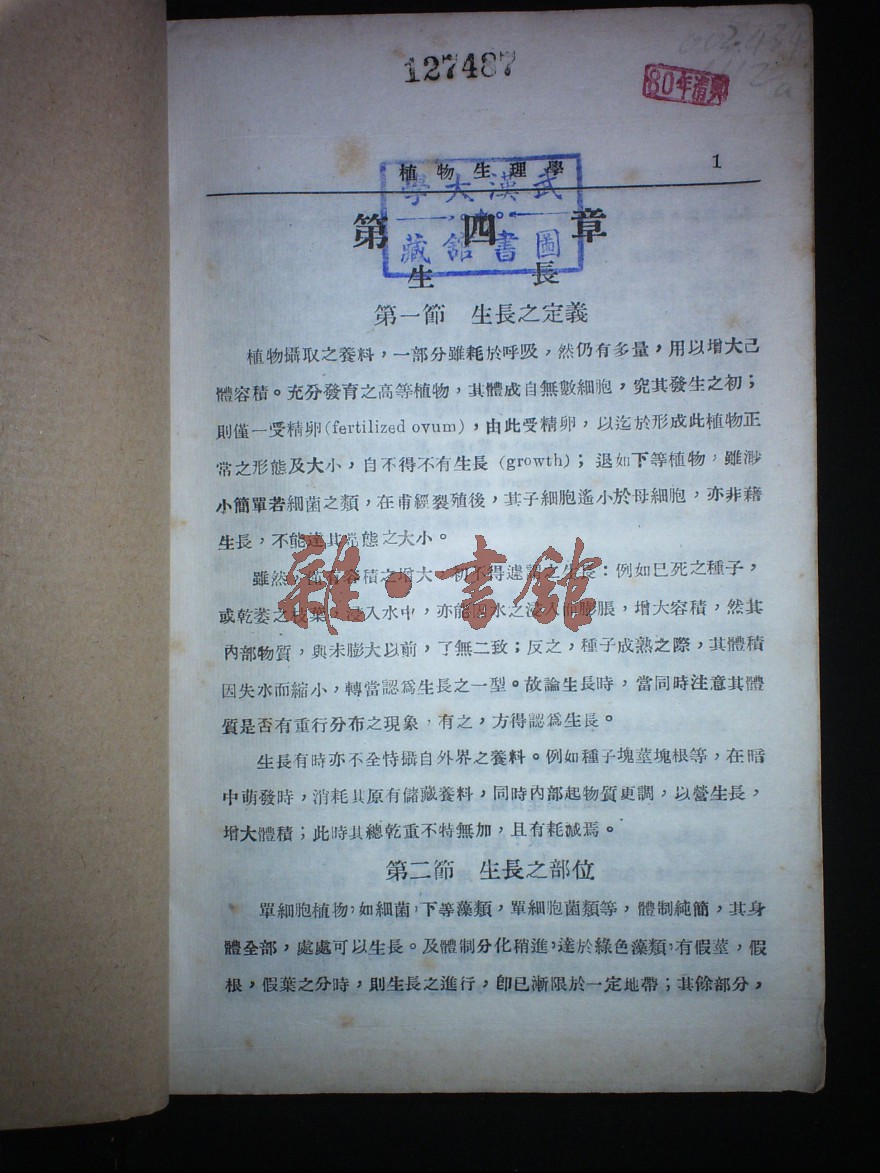 127487
80年清點
植物生理學 1
武漢大學
圖書館藏
第四章
生長
第一節 生長之定義
植物攝取之養料，一部分雖耗於呼吸，然仍有多量，用以增大己
體容積。充分發育之高等植物，其體成自無數細胞，究其發生之初；
則僅一受精卵(fertilized ovum)，由此受精卵，以迄於形成此植物正
常之形態及大小，自不得不有生長 (growth)；退如下等植物，雖渺
小簡單若細菌之類，在甫經裂殖後，其子細胞遙小於母細胞，亦非藉
生長，不能達其常態之大小。
雜·書館
雖然，僅有容積之增大，初不得遽謂之生長：例如已死之種子，
或乾萎之枝葉，浸入水中，亦能因水之浸入而膨脹，增大容積，然其
內部物質，與未膨大以前，了無二致；反之，種子成熟之際，其體積
因失水而縮小，轉當認爲生長之一型。故論生長時，當同時注意其體
質是否有重行分布之現象，有之，方得認爲生長。
生長有時亦不全恃攝自外界之養料。例如種子塊莖塊根等，在暗
中萌發時，消耗其原有儲藏養料，同時內部起物質更調，以營生長，
增大體積；此時其總乾重不特無加，且有耗減焉。
第二節 生長之部位
單細胞植物，如細菌，下等藻類，單細胞菌類等，體制純簡，其身
體全部，處處可以生長。及體制分化稍進，達於綠色藻類，有假莖，假
根，假葉之分時，則生長之進行，卽已漸限於一定地帶；其餘部分，